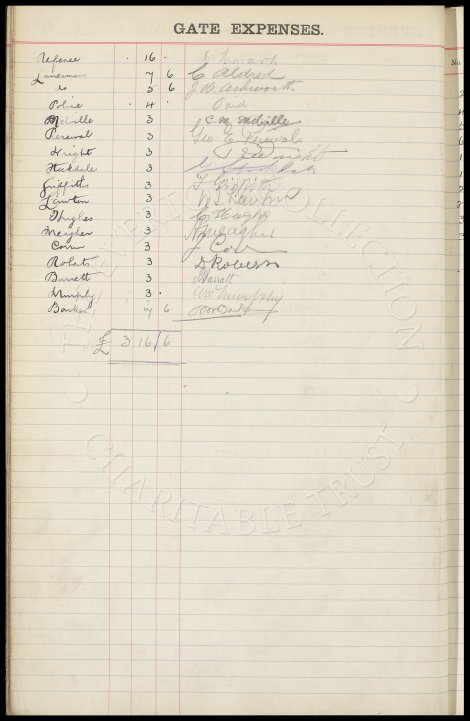 GATE EXPENSES.
No.
Referee 16
Linesman 7 6 C Aldred
Do 5 6 J B Ashworth
Police 4 Paid
Melville 3 C. M. Melville
Percival 3 Geo E Percival
Wright 3 Wright
3
Griffiths 3 T Griffiths
Lawton 3 W Lawton
Hughes 3 C Hughes
Meagher 3 Meagher
3 J
Roberts 3 Roberts
Barrett 3 Barrett
Murphy 3 Wm Murphy
Bankes 7 6
£ 3 16 6
THE EVERTON COLLECTION
CHARITABLE TRUST